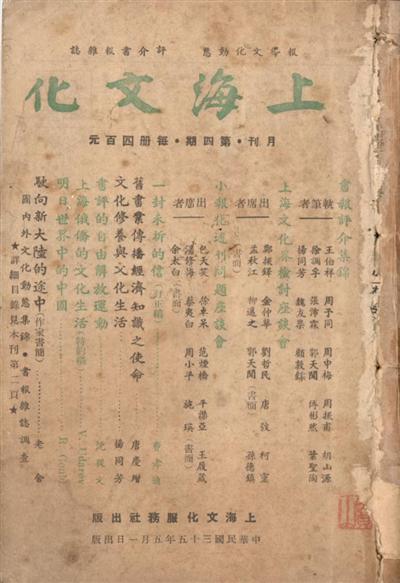 報導文化動態 評介書報雜誌
上海文化
月刊・第四期・每册四百元
書報評介集錦
執筆者
王伯祥 周予同 周中梅 周振甫 胡山源
徐調孚 張沛霖 郭天聞 傅彬然 葉聖陶
楊同芳 魏友棐 顧敦鍒
上海文化界檢討座談會
出席者
鄭振鐸 金仲華 劉哲民 唐弢 柯靈
孟秋江 柳還之 郭天聞(書面) 孫德鎮
小報化週刊問題座談會
出席者
包天笑 徐卓呆 范煙橋 平襟亞 王展箴
張修海 蔡夷白 周小平 施瑛(書面)
余太白(書面)
一封未拆的信(訂正稿)
舊書業傳播經濟知識之使命 唐慶增
文化修養與文化生活 楊同芳
書評的自由解放運動 沈從文
上海俄僑的文化生活(特約稿) V. Udarev
明日世界中的中國 R. Gould
駛向新大陸的途中(作家書簡) 老舍
國內外文化動態集錦・書報雜誌調查
★詳細目錄見本刊第二頁★
上海文化服務社出版
中華民國三十五年五月一日出版